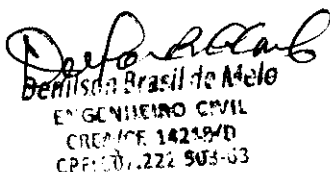 Denilson Brasil de Melo
ENGENHEIRO CIVIL
CREA/CE 14219/D
CPF: 222 903-63